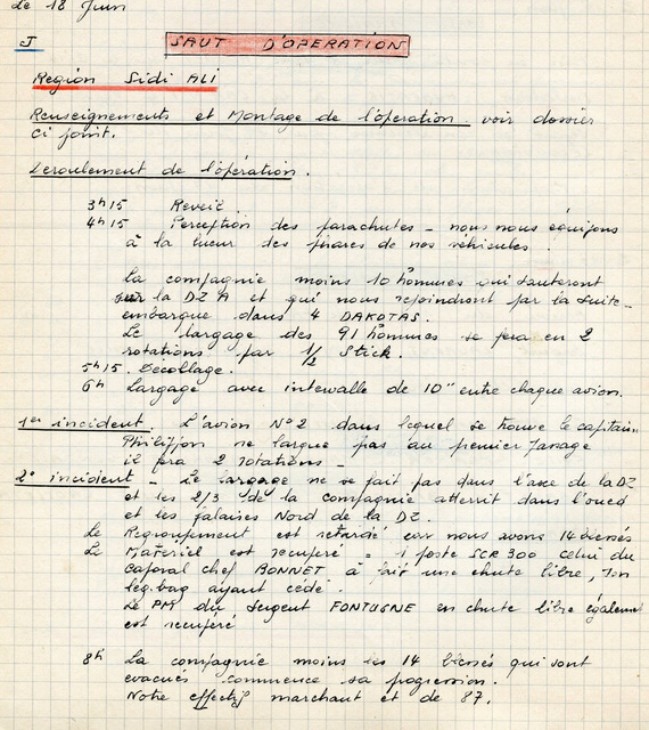 Le 18 Juin
J
SAUT D'OPERATION
Region Sidi ALI
Renseignements et Montage de l'operation. voir dossier
ci joint.
Deroulement de l'opération.
3h15 Reveil
4h15 Perception des parachutes - nous nous équipons
à la lueur des phares de nos véhicules
la compagnie moins 10 hommes qui sauteront
sur la DZ A et qui nous rejoindront par la suite -
embarque dans 4 DAKOTAS.
Le largage des 91 hommes se fera en 2
rotations par 1/2 Stick.
5h15. Decollage.
6h Largage avec intervalle de 10" entre chaque avion.
1er incident. L'avion N°2 dans lequel se trouve le capitain
Philippon ne largue pas au premier passage
il fera 2 rotations -
2° incident - Le largage ne se fait pas dans l'axe de la DZ
et les 2/3 de la compagnie atterrit dans l'oued
et les falaises Nord de la DZ.
Le Regroupement est retardé car nous avons 14 blessés
Le Materiel est recuperé - 1 poste SCR 300 celui du
caporal chef BONNET à fait une chute libre, son
leg-bag ayant cédé.
Le PM du sergent FONTUGNE en chute libre égalemen
est recuperé
8h La compagnie moins les 14 blessés qui sont
evacués commence sa pogression.
Notre effectif marchant et de 87.